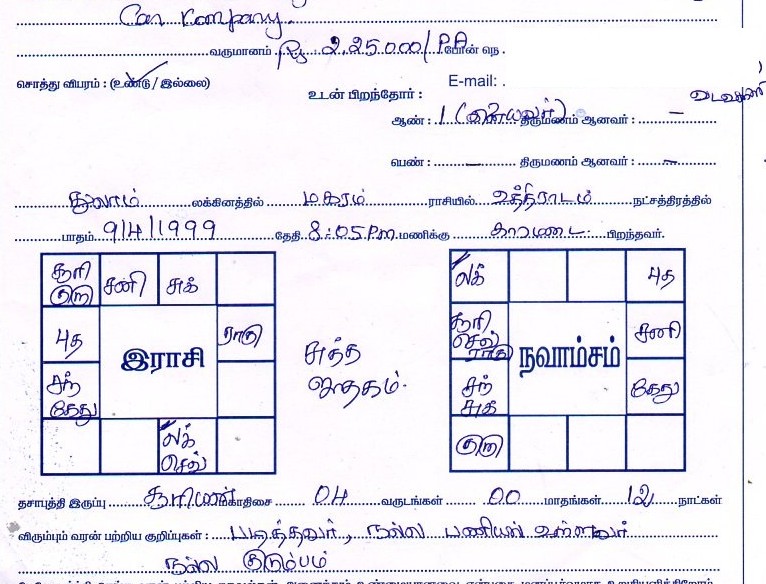 Car Company.
வருமானம் Rs 2.25000/PA போன் நெ .
சொத்து விபரம் : (உண்டு / இல்லை)
E-mail: .
உடன் பிறந்தோர் :
ஆண் : 1 (இளையவர்) திருமணம் ஆனவர் : –
பெண் : – திருமணம் ஆனவர் : –
துலாம் லக்கினத்தில் மகரம் ராசியில் உத்திராடம் நட்சத்திரத்தில்
பாதம் 9/4/1999 தேதி 8:05 P.m. மணிக்கு காரமடை பிறந்தவர்.
சூரி குரு சனி சுக்
புத ராகு
இராசி
சந் கேது
லக் செவ்
சுத்த ஜாதகம்.
லக் புத
சூரி செவ் ராகு சனி
நவாம்சம்
சந் சுக் கேது
குரு
தசாபுத்தி இருப்பு சூரியன் மகாதிசை 04 வருடங்கள் 00 மாதங்கள் 12 நாட்கள்
விரும்பும் வரன் பற்றிய குறிப்புகள் : படித்தவர், நல்ல பணியில் உள்ளவர்
நல்ல குடும்பம்